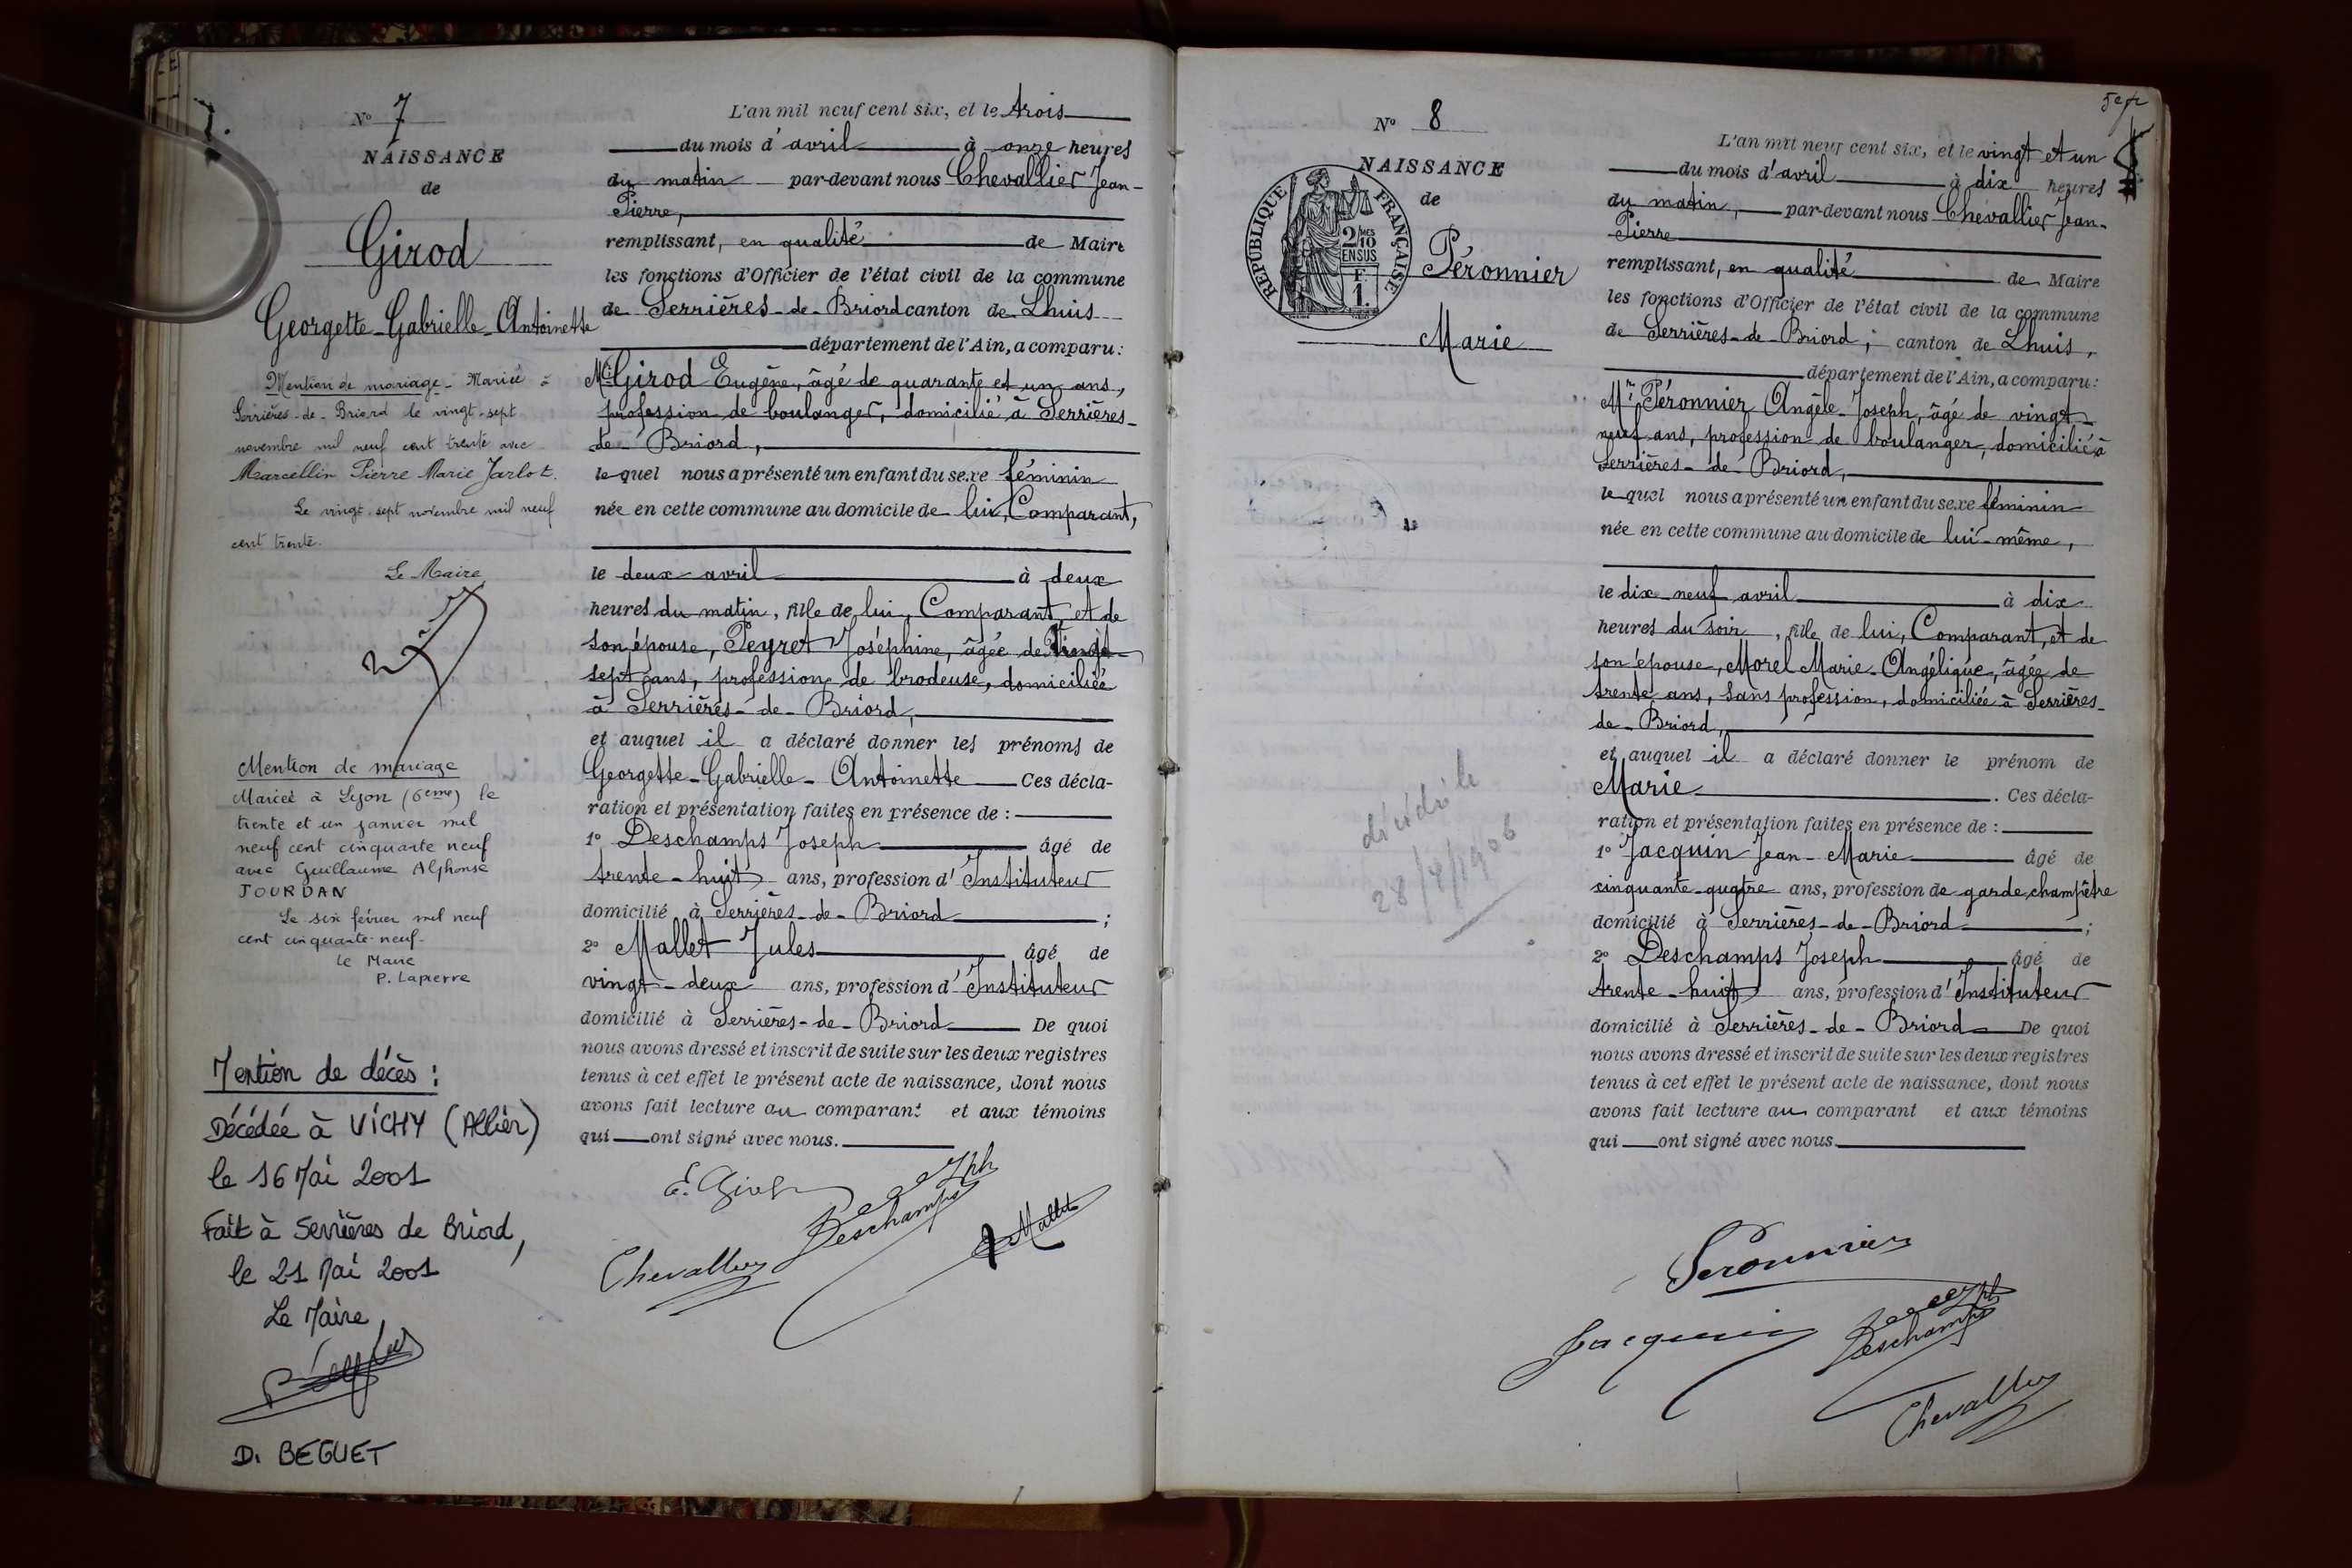 N° 7
NAISSANCE
de
Girod
Georgette-Gabrielle-Antoinette
Mention de mariage - Mariée à
Serrières-de-Briord le vingt-sept
novembre mil neuf cent trente avec
Marcellin Pierre Marie Jarlot.
Le vingt-sept novembre mil neuf
cent trente.
Le Maire
Mention de mariage
Mariée à Lyon (6eme) le
trente et un janvier mil
neuf cent cinquante neuf
avec Guillaume Alphonse
JOURDAN
Le six février mil neuf
cent cinquante-neuf-
Le Maire
P. Lapierre
Mention de décès :
Décédée à VICHY (Allier)
le 16 Mai 2001
Fait à Serrières de Briord,
le 21 Mai 2001
Le Maire,
D. BEGUET
L'an mil neuf cent six, et le trois
du mois d'avril à onze heures
du matin par-devant nous Chevallier Jean-
Pierre,
remplissant, en qualité de Maire
les fonctions d'Officier de l'état civil de la commune
de Serrières-de-Briord canton de Lhuis
département de l'Ain, a comparu :
Mr Girod Eugène, âgé de quarante et un ans,
profession de boulanger, domicilié à Serrières-
de-Briord,
lequel nous a présenté un enfant du sexe féminin
née en cette commune au domicile de lui, Comparant,
le deux avril à deux
heures du matin, fille de lui, Comparant, et de
son épouse, Peyret Joséphine, âgée de
sept ans, profession de brodeuse, domiciliée
à Serrières-de-Briord,
et auquel il a déclaré donner les prénoms de
Georgette-Gabrielle-Antoinette Ces décla-
ration et présentation faites en présence de :
1° Deschamps Joseph âgé de
trente-huit ans, profession d'Instituteur
domicilié à Serrières-de-Briord ;
2° Mallet Jules âgé de
vingt-deux ans, profession d'Instituteur
domicilié à Serrières-de-Briord De quoi
nous avons dressé et inscrit de suite sur les deux registres
tenus à cet effet le présent acte de naissance, dont nous
avons fait lecture au comparant et aux témoins
qui ont signé avec nous.
E. Girod
Deschamps Jph
Mallet
Chevallier
N° 8
NAISSANCE
de
RÉPUBLIQUE FRANÇAISE
2/10 MES
EN SUS
F.
1.
Péronnier
Marie
décédée le
28/4/1906
L'an mil neuf cent six, et le vingt et un
du mois d'avril à dix heures
du matin, par-devant nous Chevallier Jean-
Pierre
remplissant, en qualité de Maire
les fonctions d'Officier de l'état civil de la commune
de Serrières-de-Briord ; canton de Lhuis,
département de l'Ain, a comparu :
Mr Péronnier Angèle-Joseph, âgé de vingt-
neuf ans, profession de boulanger, domicilié à
Serrières-de-Briord,
lequel nous a présenté un enfant du sexe féminin
née en cette commune au domicile de lui-même,
le dix-neuf avril à dix
heures du soir, fille de lui, Comparant, et de
son épouse, Morel Marie-Angélique, âgée de
trente ans, sans profession, domiciliée à Serrières-
de-Briord,
et auquel il a déclaré donner le prénom de
Marie . Ces décla-
ration et présentation faites en présence de :
1° Jacquin Jean-Marie âgé de
cinquante-quatre ans, profession de garde champêtre
domicilié à Serrières-de-Briord ;
2° Deschamps Joseph âgé de
trente-huit ans, profession d'Instituteur
domicilié à Serrières-de-Briord De quoi
nous avons dressé et inscrit de suite sur les deux registres
tenus à cet effet le présent acte de naissance, dont nous
avons fait lecture au comparant et aux témoins
qui ont signé avec nous
Peronnier
Jacquin
Deschamps Jph
Chevallier